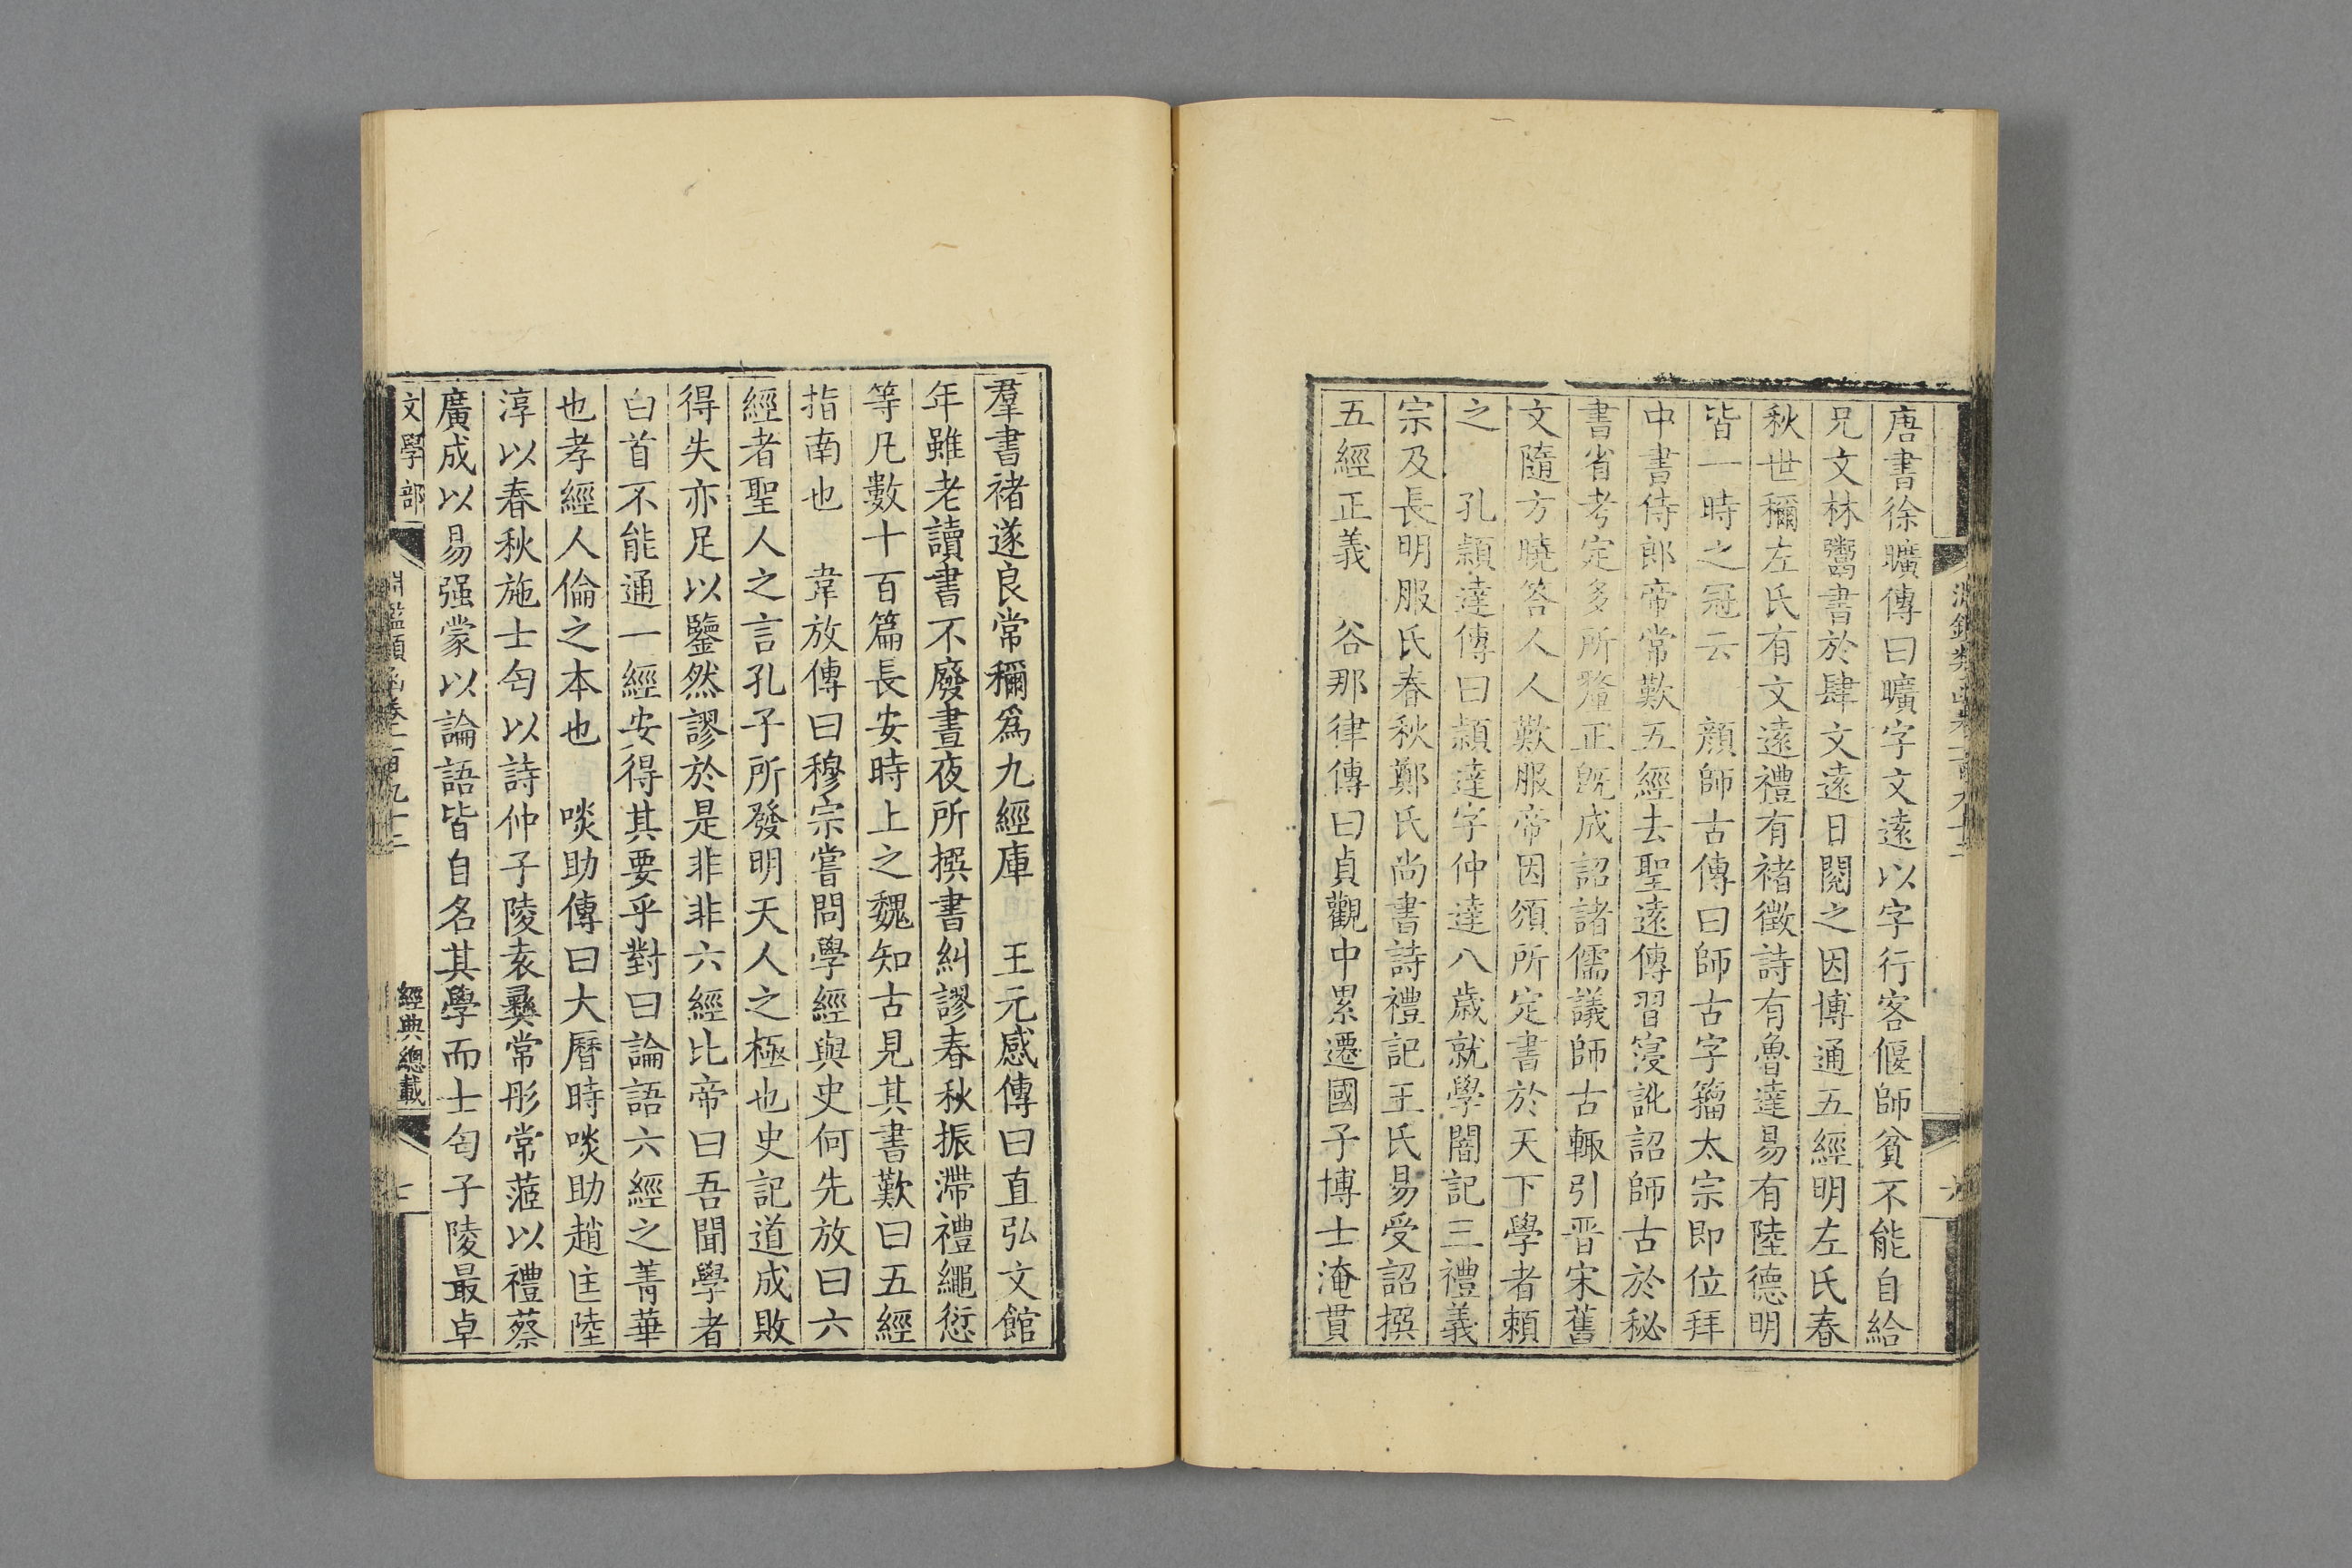 唐書徐曠傳曰曠字文遠以字行客偃師貧不能自給
兄文林鬻書於肆文遠日閱之因博通五經明左氏春
秋世稱左氏有文遠禮有褚徵詩有魯達易有陸德明
皆一時之冠云　顏師古傳曰師古字籀太宗即位拜
中書侍郎帝常歎五經去聖遠傳習寖訛詔師古於秘
書省考定多所釐正既成詔諸儒議師古輒引晋宋舊
文隨方曉答人人歎服帝因頒所定書於天下學者賴
之　孔穎達傳曰穎達字仲達八歲就學闇記三禮義
宗及長明服氏春秋鄭氏尚書詩禮記王氏易受詔撰
五經正義　谷那律傳曰貞觀中累遷國子博士淹貫
羣書褚遂良常稱爲九經庫　王元感傳曰直弘文館
年雖老讀書不廢晝夜所撰書糾謬春秋振滯禮繩愆
等凡數十百篇長安時上之魏知古見其書歎曰五經
指南也　韋放傳曰穆宗嘗問學經與史何先放曰六
經者聖人之言孔子所發明天人之極也史記道成敗
得失亦足以鑒然謬於是非非六經比帝曰吾聞學者
白首不能通一經安得其要乎對曰論語六經之菁華
也孝經人倫之本也　啖助傳曰大曆時啖助趙匡陸
淳以春秋施士匄以詩仲子陵袁彝常彤常蒞以禮蔡
廣成以易强蒙以論語皆自名其學而士匄子陵最卓
文學部
經典總載